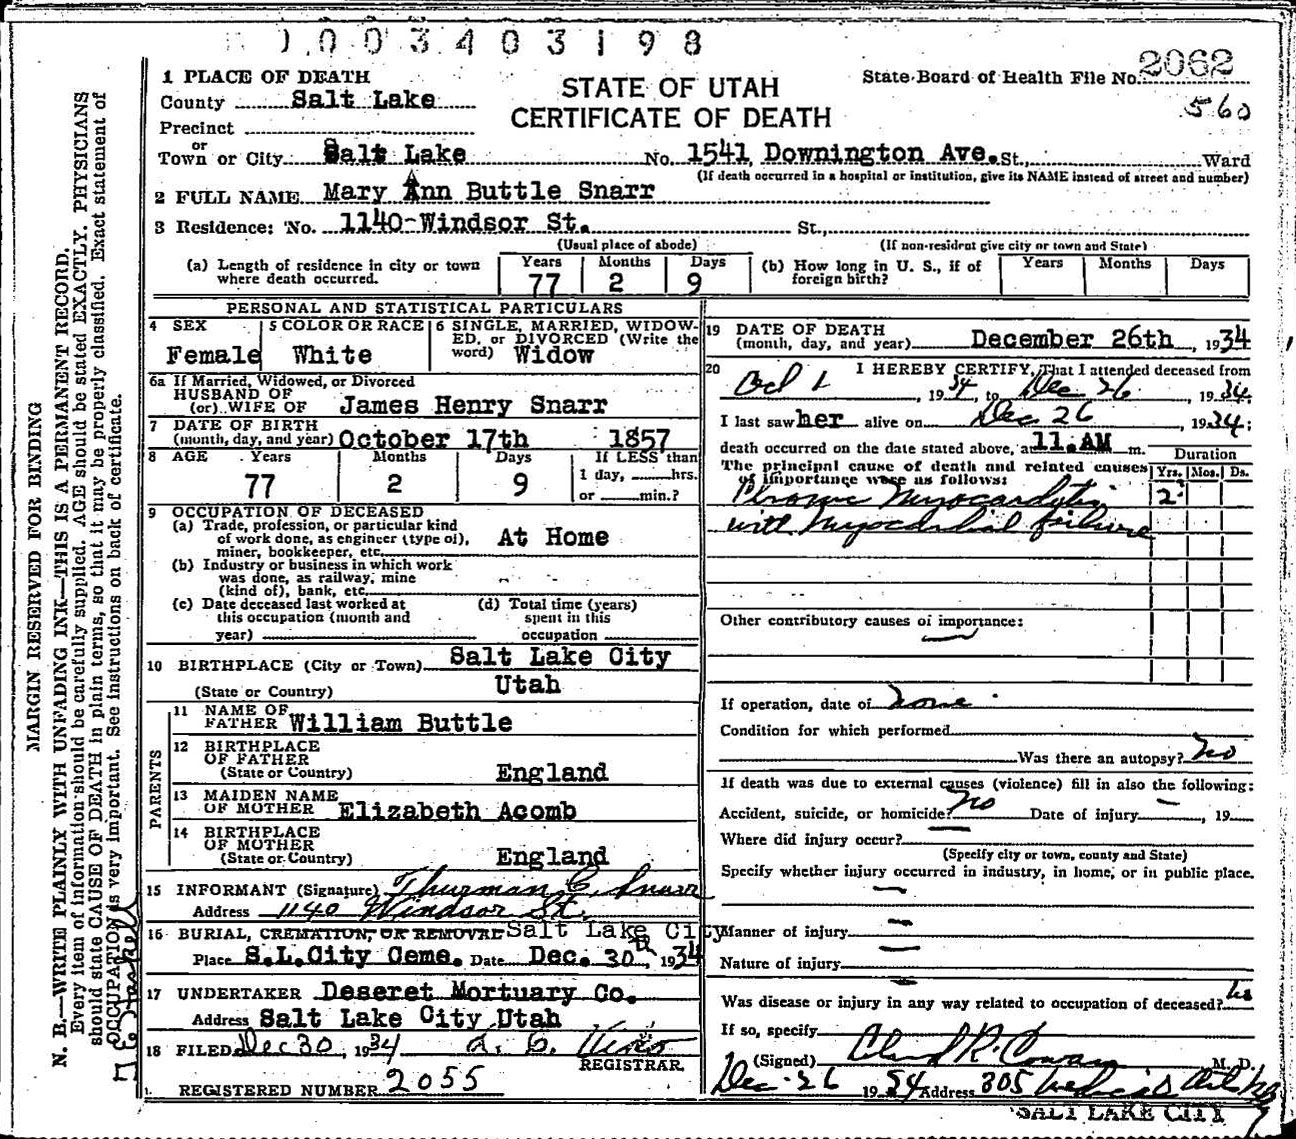 1003403198
1 PLACE OF DEATH
County Salt Lake
Precinct
or
Town or City Salt Lake
STATE OF UTAH
CERTIFICATE OF DEATH
State Board of Health File No. 2062
560
No. 1541 Downington Ave. St., Ward
(If death occurred in a hospital or institution, give its NAME instead of street and number)
2 FULL NAME Mary Ann Buttle Snarr
3 Residence: No. 1140 Windsor St. St.,
(Usual place of abode) (If non-resident give city or town and State)
(a) Length of residence in city or town where death occurred. Years 77 Months 2 Days 9
(b) How long in U. S., if of foreign birth? Years Months Days
PERSONAL AND STATISTICAL PARTICULARS
4 SEX Female
5 COLOR OR RACE White
6 SINGLE, MARRIED, WIDOWED, or DIVORCED (Write the word) Widow
6a If Married, Widowed, or Divorced
HUSBAND OF
(or) WIFE OF James Henry Snarr
7 DATE OF BIRTH
(month, day, and year) October 17th 1857
8 AGE Years 77 Months 2 Days 9 If LESS than 1 day, hrs. or min.?
9 OCCUPATION OF DECEASED
(a) Trade, profession, or particular kind of work done, as engineer (type of), miner, bookkeeper, etc. At Home
(b) Industry or business in which work was done, as railway, mine (kind of), bank, etc.
(c) Date deceased last worked at this occupation (month and year)
(d) Total time (years) spent in this occupation
10 BIRTHPLACE (City or Town) Salt Lake City
(State or Country) Utah
PARENTS
11 NAME OF FATHER William Buttle
12 BIRTHPLACE OF FATHER
(State or Country) England
13 MAIDEN NAME OF MOTHER Elizabeth Acomb
14 BIRTHPLACE OF MOTHER
(State or Country) England
15 INFORMANT (Signature) Thurman C. Snarr
Address 1140 Windsor St.
16 BURIAL, CREMATION, OR REMOVAL Salt Lake City
Place S.L.City Ceme. Date Dec. 30th, 1934
17 UNDERTAKER Deseret Mortuary Co.
Address Salt Lake City Utah
18 FILED Dec 30, 1934
REGISTRAR.
REGISTERED NUMBER 2055
19 DATE OF DEATH
(month, day, and year) December 26th, 1934
20 I HEREBY CERTIFY, That I attended deceased from
Oct 1, 1934, to Dec 26, 1934.
I last saw her alive on Dec 26, 1934;
death occurred on the date stated above, at 11.AM m.
The principal cause of death and related causes of importance were as follows:
Duration
Yrs. Mos. Ds.
Chronic Myocarditis 2
with Myocardial failure
Other contributory causes of importance:
If operation, date of none
Condition for which performed
Was there an autopsy? No
If death was due to external causes (violence) fill in also the following:
Accident, suicide, or homicide? no Date of injury , 19
Where did injury occur?
(Specify city or town, county and State)
Specify whether injury occurred in industry, in home, or in public place.
Manner of injury
Nature of injury
Was disease or injury in any way related to occupation of deceased? No
If so, specify
(Signed) M. D.
Dec 26 1934 Address 305 Medical Arts Bldg
SALT LAKE CITY
MARGIN RESERVED FOR BINDING
N. B.—WRITE PLAINLY WITH UNFADING INK—THIS IS A PERMANENT RECORD.
Every item of information should be carefully supplied. AGE should be stated EXACTLY. PHYSICIANS
should state CAUSE OF DEATH in plain terms, so that it may be properly classified. Exact statement of
OCCUPATION is very important. See instructions on back of certificate.